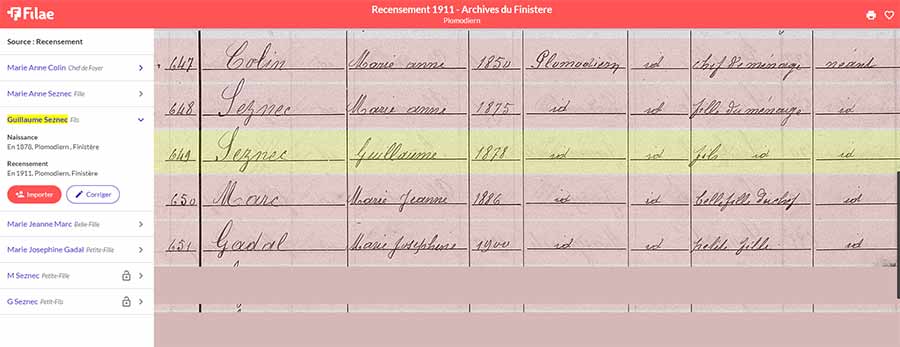 Filae
Recensement 1911 - Archives du Finistere
Plomodiern
Source : Recensement
Marie Anne Colin Chef de Foyer
Marie Anne Seznec Fille
Guillaume Seznec Fils
Naissance
En 1878, Plomodiern , Finistère
Recensement
En 1911, Plomodiern, Finistère
Importer Corriger
Marie Jeanne Marc Belle-Fille
Marie Josephine Gadal Petite-Fille
M Seznec Petite-Fille
G Seznec Petit-Fils
647 Colin Marie anne 1850 Plomodiern id chef de ménage néant
648 Seznec Marie anne 1875 id id fille du ménage id
649 Seznec Guillaume 1878 id id fils id id
650 Marc Marie Jeanne 1886 id id belle fille du chef id
651 Gadal Marie Josephine 1900 id id petite fille id